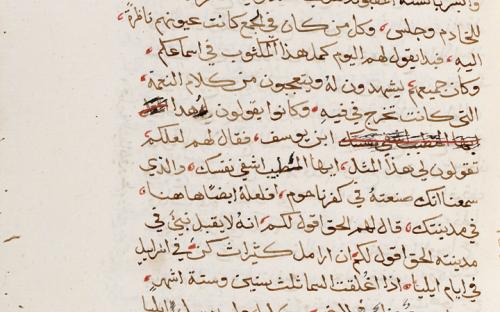 للخادم وجلس، وكل من كان في المجمع كانت عيونهم ناظرة
اليه، فبدا يقول لهم اليوم كمل هذا المكتوب في اسماعكم،
وكان جميعهم يشهدون له ويتعجبون من كلام النعمة
التي كانت تخرج من فيه، وكانوا يقولون اهدا
ابن يوسف، فقال لهم لعلكم
تقولون لي هذا المثل، ايها المطبب اشفي نفسك، والذي
سمعنا انك صنعته في كفرناحوم، افعله ايضًا هاهنا
في مدينتك، قال لهم الحق اقول لكم، انه لا يقبل نبي في
مدينته الحق اقول لكم ان ارامل كثيرات كن، في اسراييل
في ايام ايليا، اذا اغلقت السما ثلث سنين وستة اشهر،